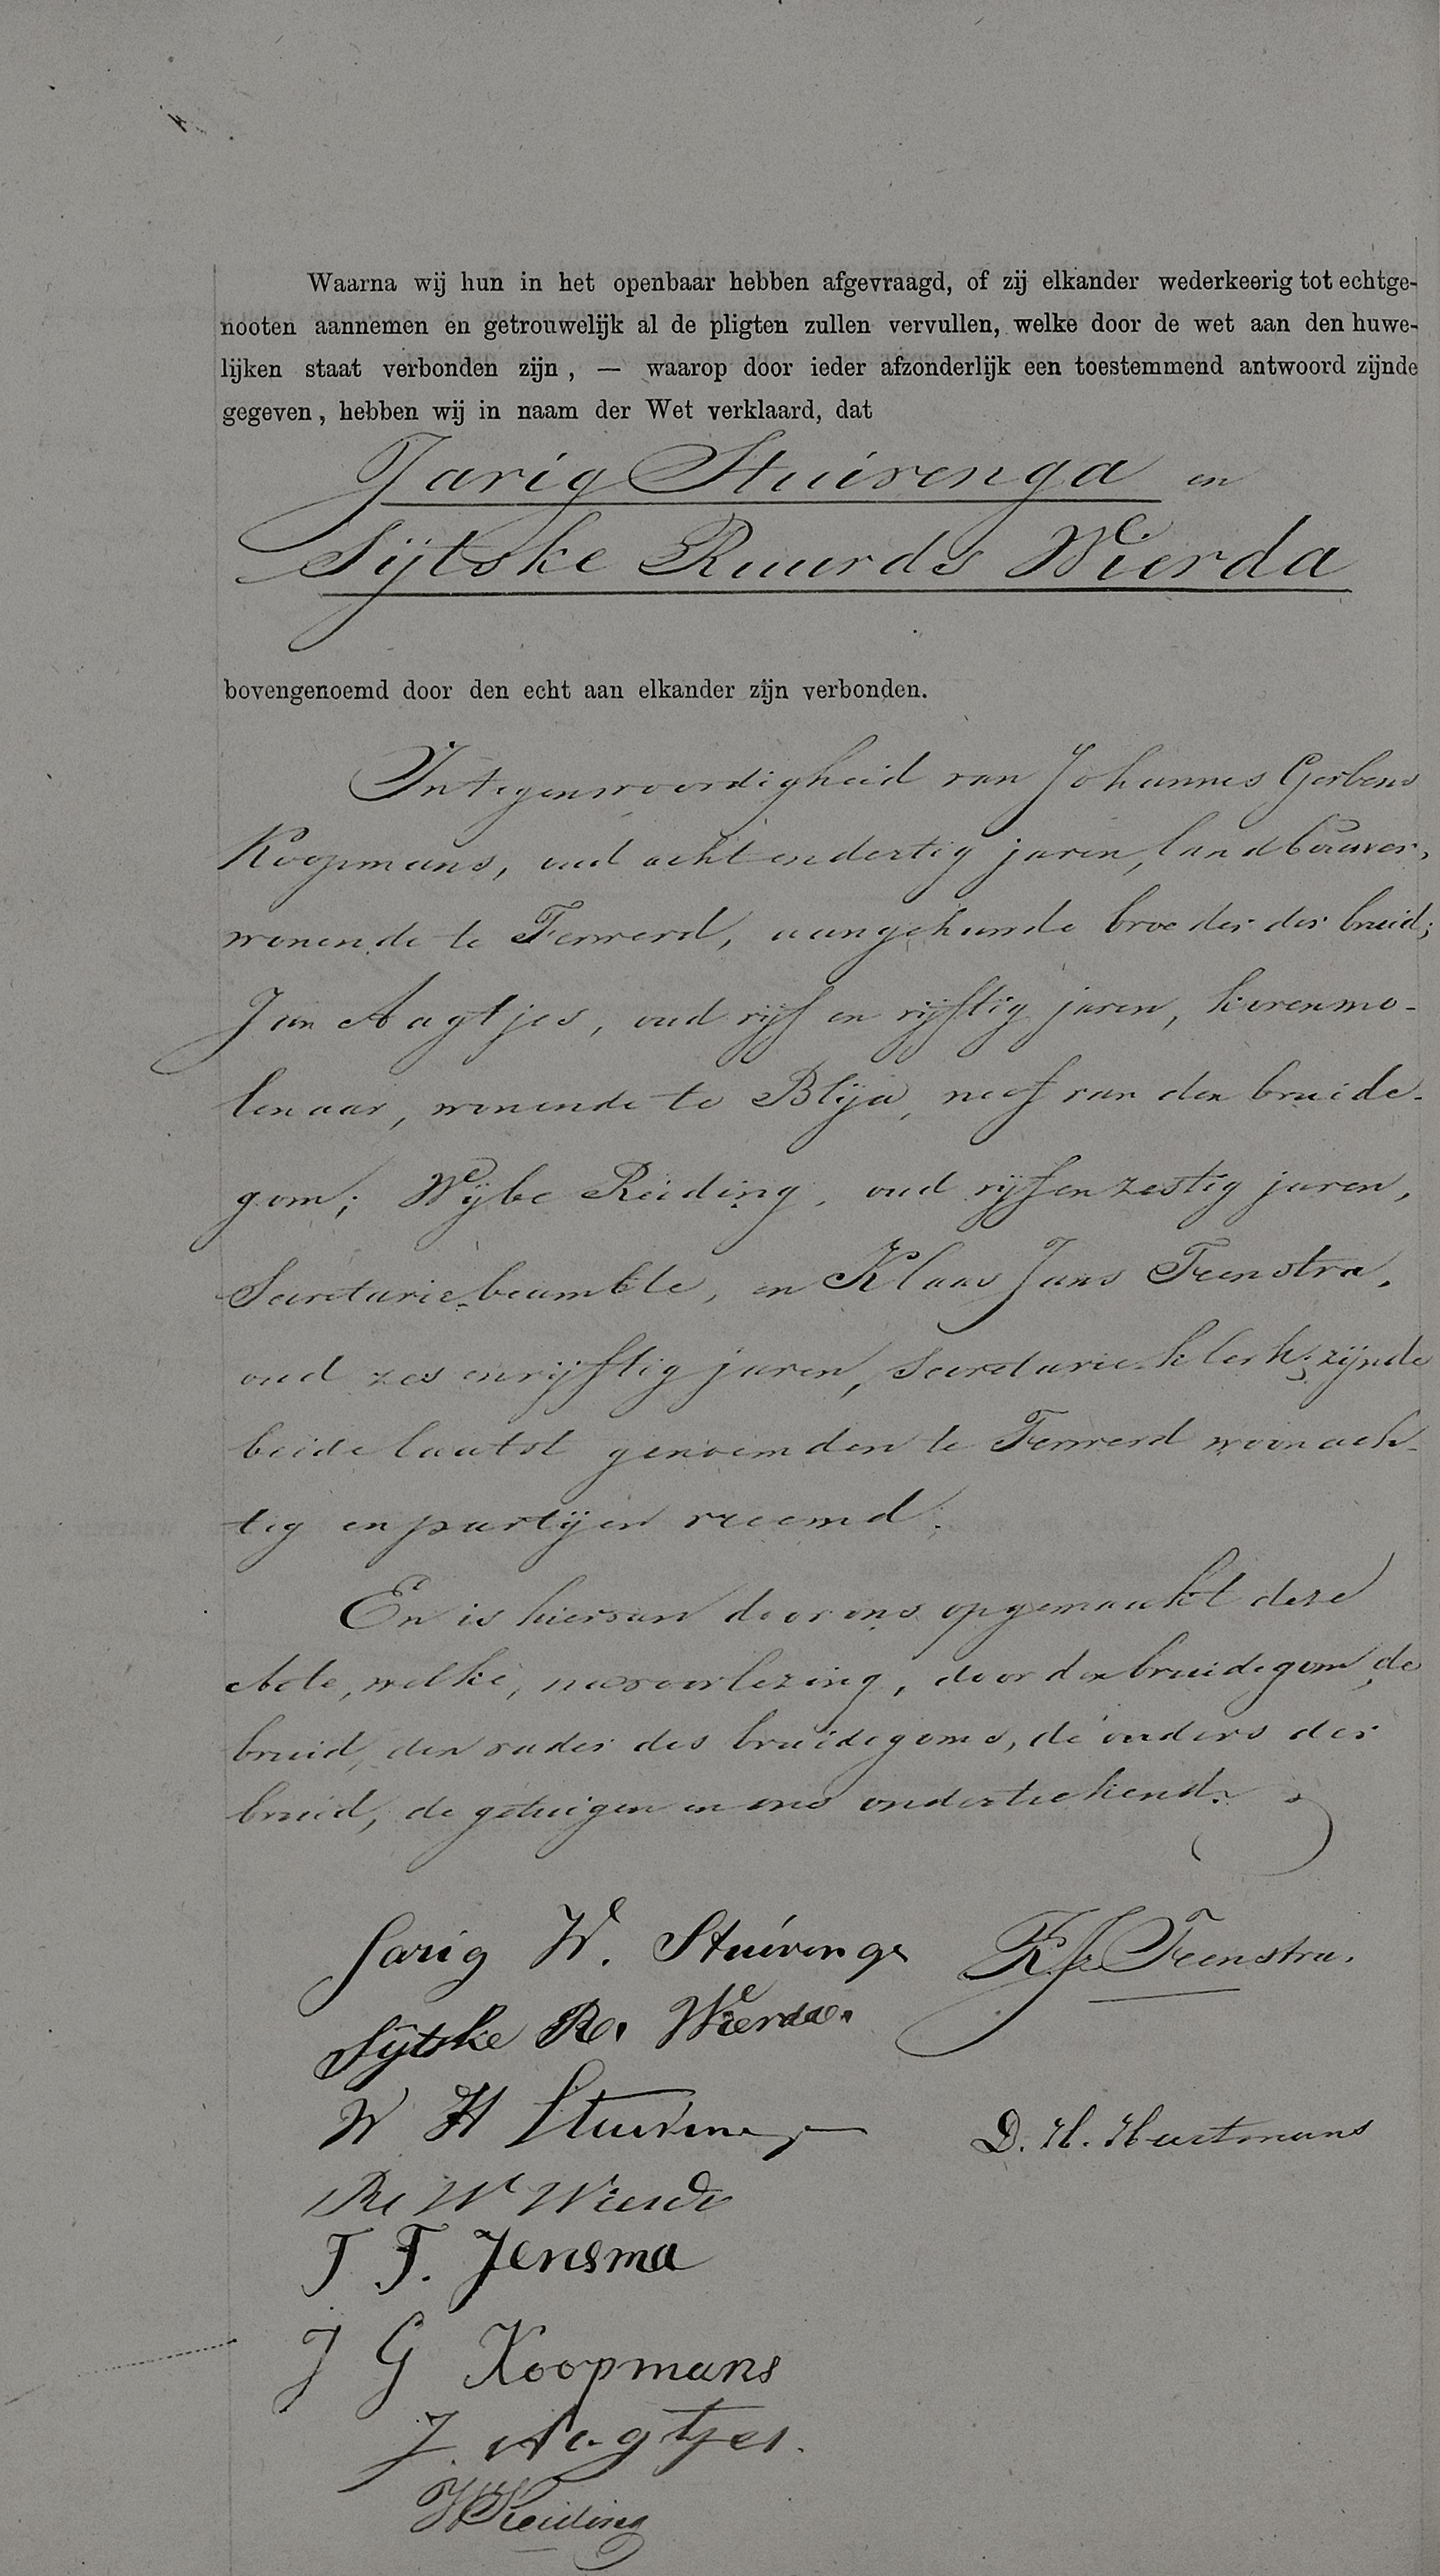 Waarna wij hun in het openbaar hebben afgevraagd, of zij elkander wederkeerig tot echtge-
nooten aannemen en getrouwelijk al de pligten zullen vervullen, welke door de wet aan den huwe-
lijken staat verbonden zijn, — waarop door ieder afzonderlijk een toestemmend antwoord zijnde
gegeven, hebben wij in naam der Wet verklaard, dat
Jarig Stuivenga en
Sijtske Ruurds Wierda
bovengenoemd door den echt aan elkander zijn verbonden.
In tegenwoordigheid van Johannes Gerbens
Koopmans, oud acht en dertig jaren, landbouwer,
wonende te Ferwerd, aangehuwde broeder der bruid;
Jan Aagtjes, oud vijf en vijftig jaren, korenmo-
lenaar, wonende te Blija, neef van den bruide-
gom; Wijbe Reiding, oud vijf en zestig jaren,
Secretarie-beambte, en Klaas Jans Feenstra,
oud zes en vijftig jaren, Secretarie-klerk; zijnde
beide laatst genoemden te Ferwerd woonach-
tig en partijen vreemd.
En is hiervan door ons opgemaakt deze
Acte, welke, na voorlezing, door den bruidegom, de
bruid, den vader des bruidegoms, de ouders der
bruid, de getuigen en ons onderteekend.
Jarig W. Stuivenga
K Js Feenstra.
Sijtske R. Wierda.
W H Stuivenga
D. H. Hartmans
R W Wierda
T T. Jensma
J G Koopmans
J. Aagtjes.
W Reiding